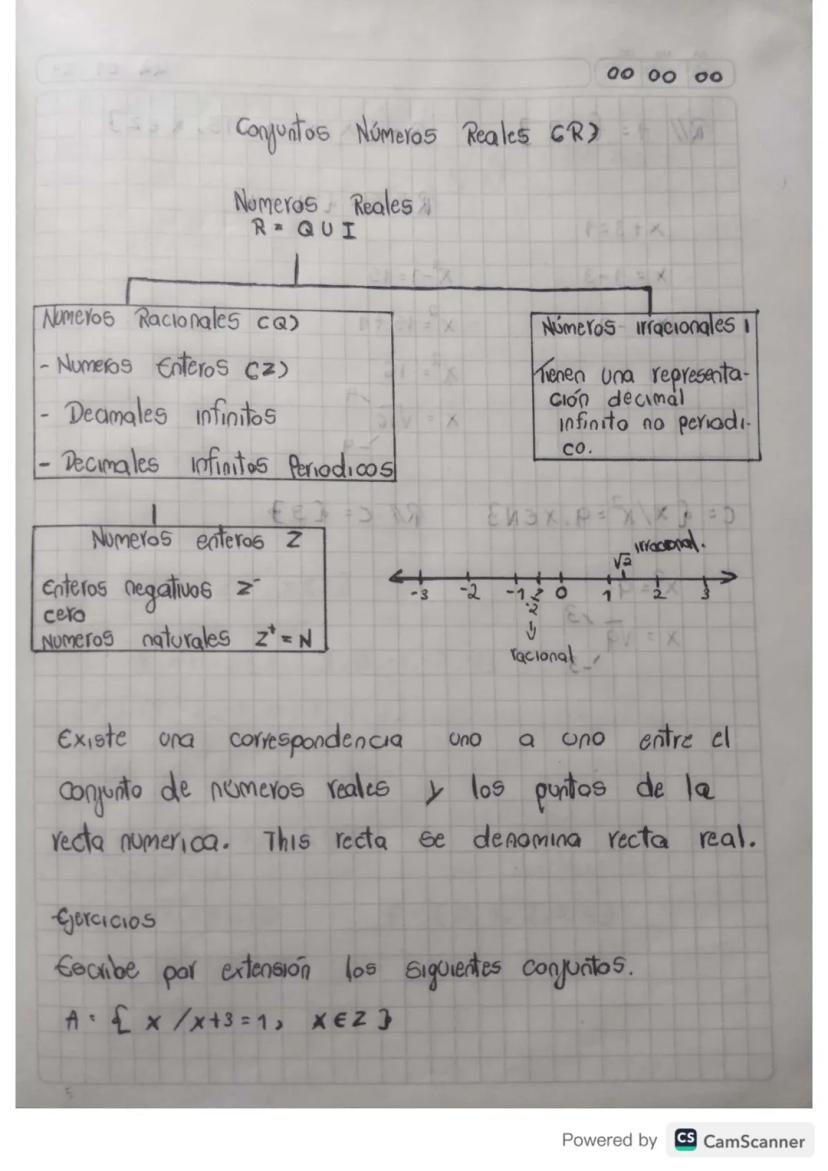 00 00 00
Conjuntos Números Reales (R)
Numeros Reales
R = Q U I
Numeros Racionales (Q)
- Numeros Enteros (Z)
- Decimales infinitos
- Decimales infinitos Periodicos
Números irracionales I
Tienen una representa-
ción decimal
infinito no periodi-
co.
Numeros enteros Z
Enteros negativos Z⁻
cero
Numeros naturales Z⁺ = N
√2 irracional.
-3 -2 -1 0 1 2 3
racional
Existe una correspondencia uno a uno entre el
conjunto de números reales y los puntos de la
recta numerica. This recta se denomina recta real.
Ejercicios
Escribe por extensión los siguientes conjuntos.
A: { x /x+3 = 1, x ∈ Z }
Powered by CS CamScanner